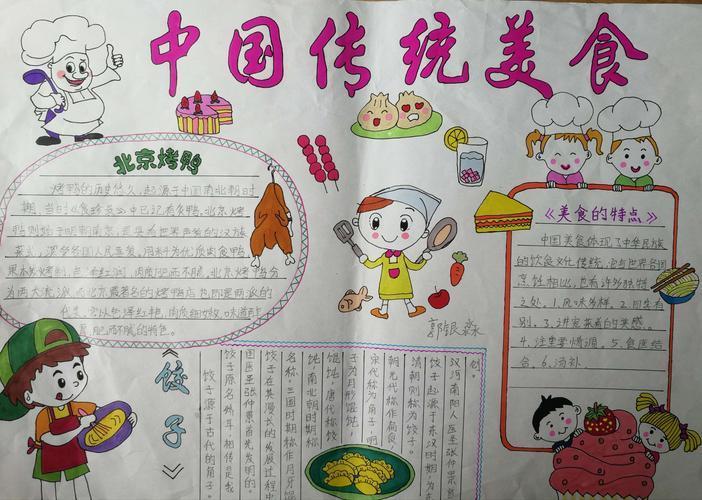 中国传统美食
北京烤鸭
烤鸭的历史悠久,起源于中国南北朝时
期,当时《食珍录》中已记有炙鸭。北京烤
鸭则始于明朝,是具有世界声誉的汉族
菜式,深受各国人民喜爱。用料为优质肉食鸭
果木炭烤制,色泽红润,肉质肥而不腻。北京烤鸭分
为两大流派,而北京最著名的烤鸭店也即是两派的
代表。它以色泽红艳,肉质细嫩,味道醇
肥而不腻的特色。
《美食的特点》
中国美食体现了中华民族
的饮食文化传统,它与世界各国
烹饪相比,也有许多独特
之处。1.风味多样。2.四季有
别。3.讲究菜肴的美感。
4.注重情调。5.食医结
合。6.汤补
《饺子》
饺子源于古代的角子。
饺子原名娇耳 相传是我
国医圣张仲景首先发明的。
饺子在其漫长的发展过程中
名称,三国时期称作月牙馄
饨,南北朝时期称
馄饨,唐代称饺
子为月形馄饨
宋代称为角子,明
朝元代称作扁食
清朝则称为饺子。
饺子起源于东汉时期,为东
汉河南阳人医圣张仲景首
创。